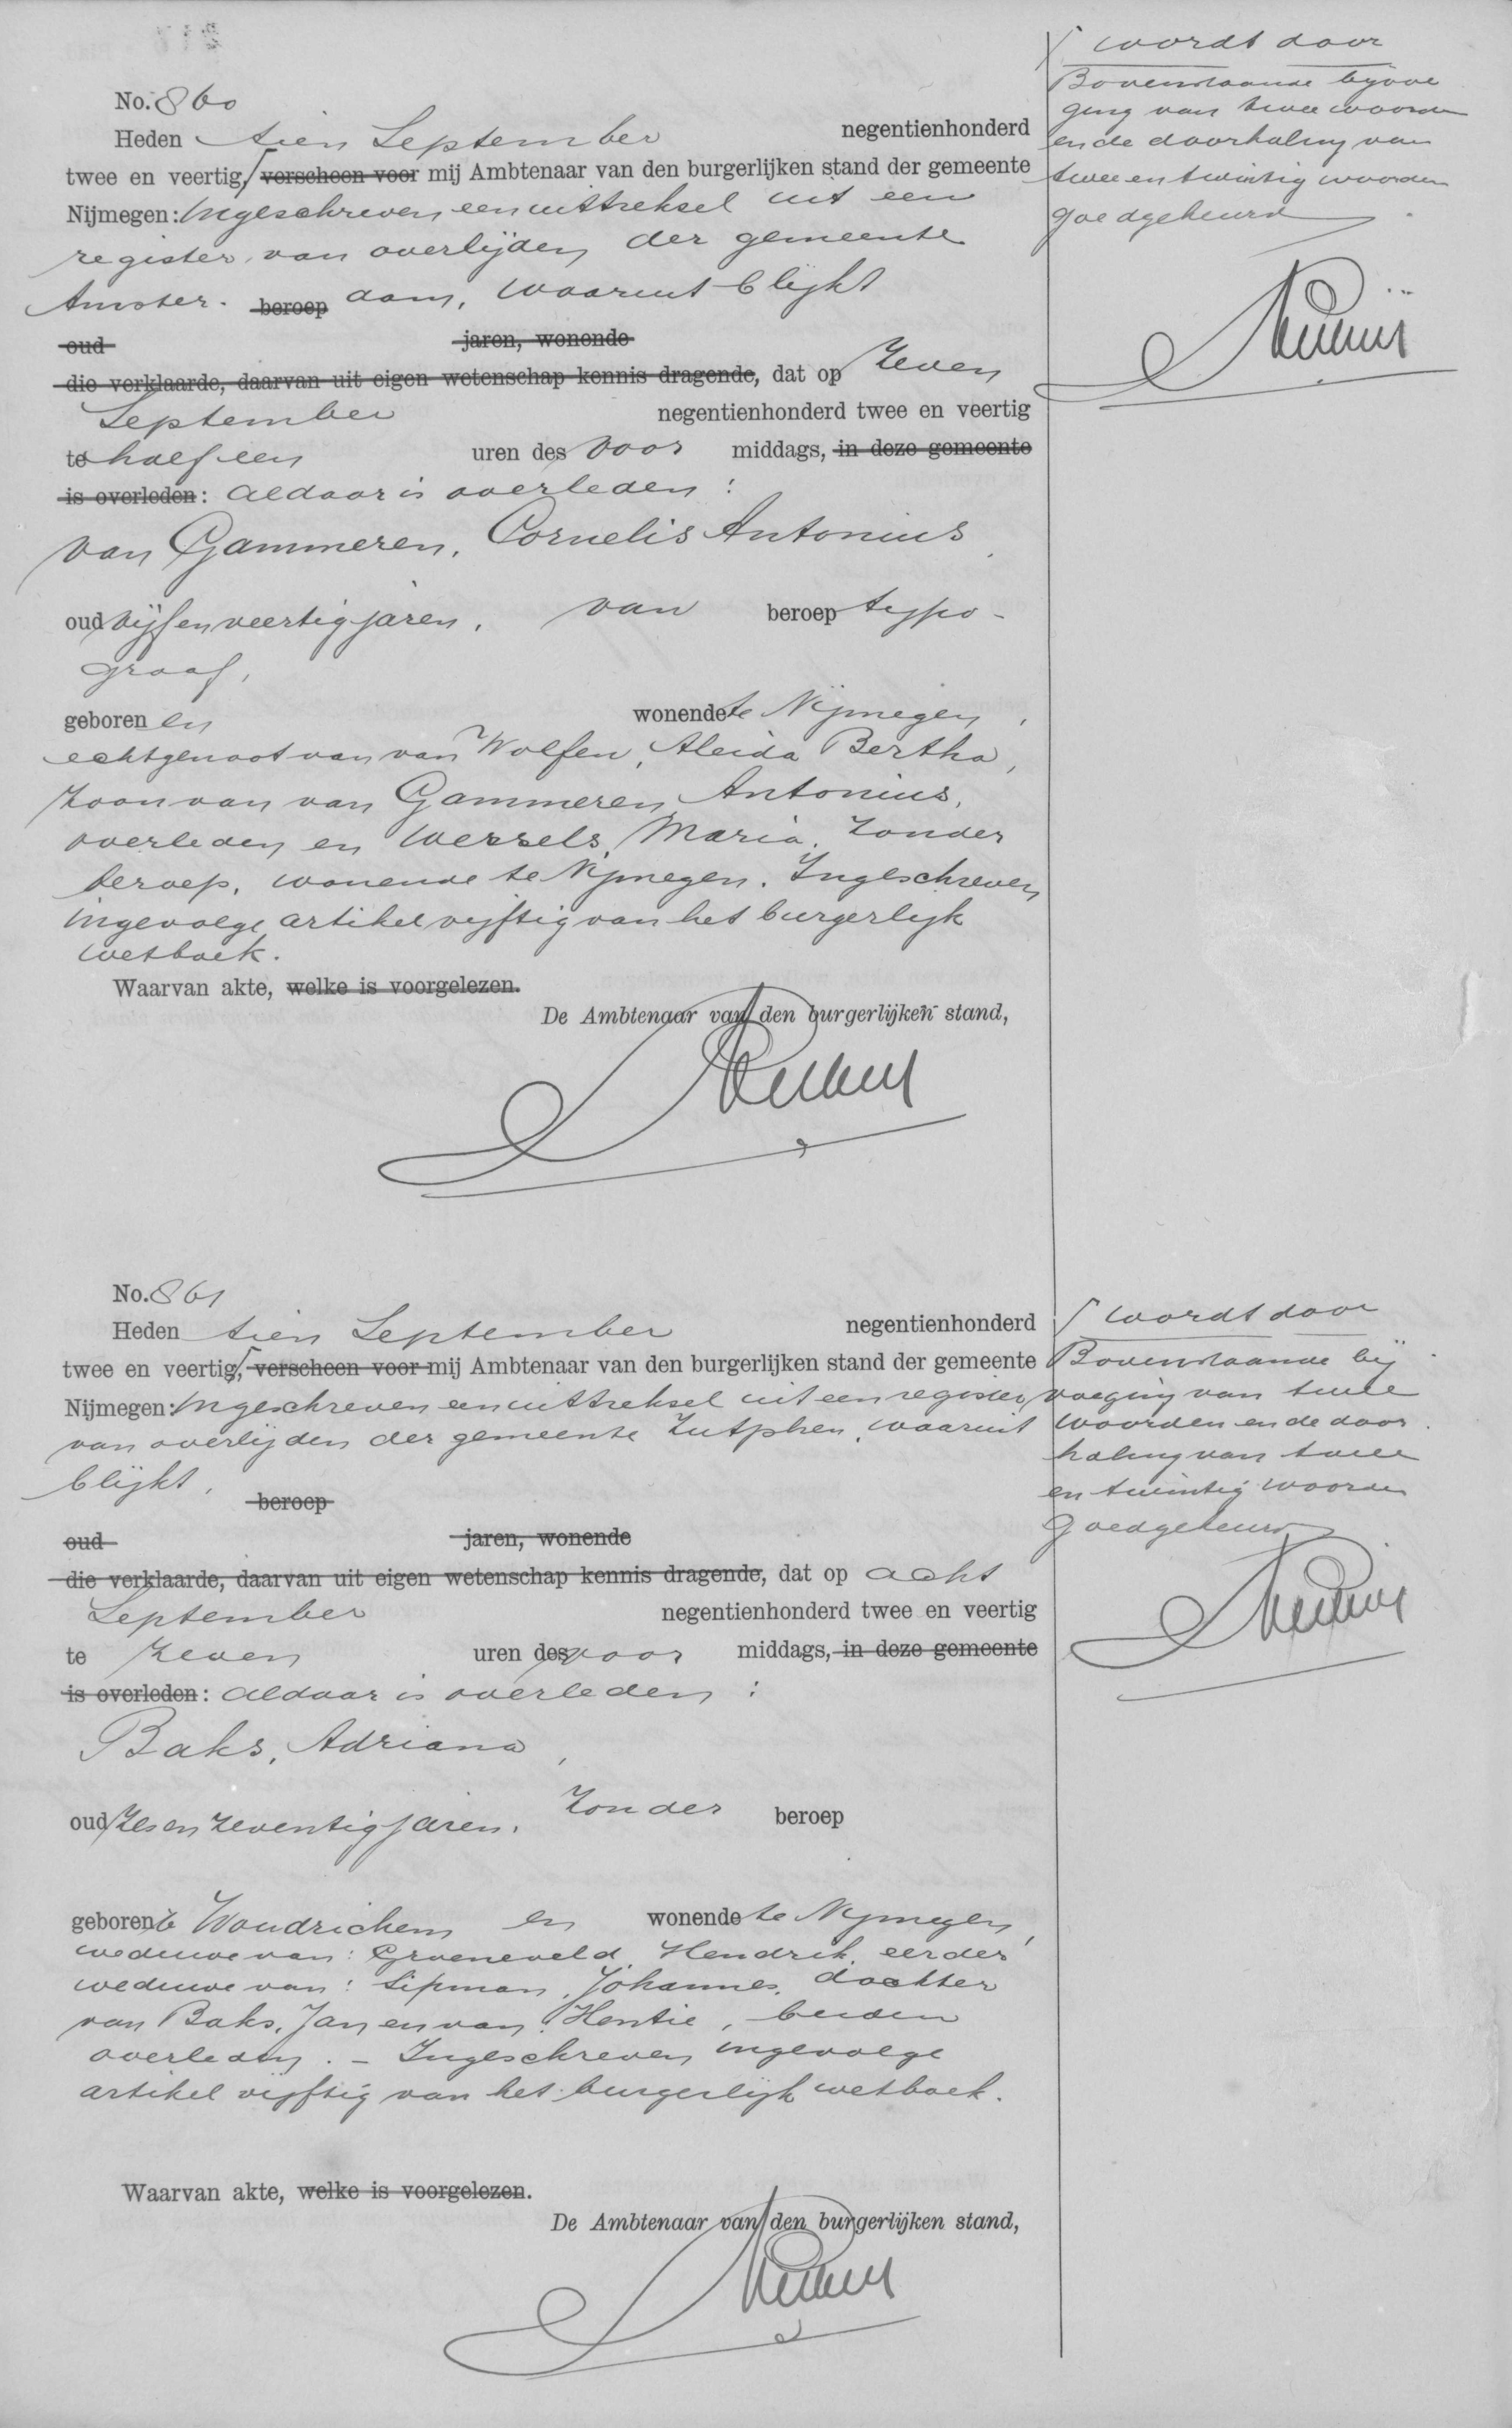 No. 860
Heden tien September negentienhonderd
twee en veertig, ⌈ verscheen voor mij Ambtenaar van den burgerlijken stand der gemeente
Nijmegen: Ingeschreven een uittreksel uit een
register van overlijden der gemeente
Amster- beroep dam, waaruit blijkt
oud jaren, wonende
die verklaarde, daarvan uit eigen wetenschap kennis dragende, dat op zeven
September negentienhonderd twee en veertig
te half een uren des voor middags, in deze gemeente
is overleden: aldaar is overleden:
van Gammeren, Cornelis Antonius,
oud vijfenveertig jaren, van beroep typo-
graaf,
geboren en wonende te Nijmegen,
echtgenoot van van Wolfen, Aleida Bertha,
zoon van van Gammeren, Antonius,
overleden en Wessels, Maria, zonder
beroep, wonende te Nijmegen. Ingeschreven
ingevolge artikel vijftig van het burgerlijk
wetboek.
Waarvan akte, welke is voorgelezen.
De Ambtenaar van den burgerlijken stand,
⌈ wordt door
Bovenstaande bijvoe
ging van twee woorden
en de doorhaling van
twee en twintig woorden
goedgekeurd
No. 861
Heden tien September negentienhonderd
twee en veertig, ⌈ verscheen voor mij Ambtenaar van den burgerlijken stand der gemeente
Nijmegen: Ingeschreven een uittreksel uit een register
van overlijden der gemeente Zutphen, waaruit
blijkt, beroep
oud jaren, wonende
die verklaarde, daarvan uit eigen wetenschap kennis dragende, dat op acht
September negentienhonderd twee en veertig
te zeven uren des voor middags, in deze gemeente
is overleden: aldaar is overleden:
Baks, Adriana,
oud zes en zeventig jaren, zonder beroep
geboren te Woudrichem en wonende te Nijmegen,
weduwe van: Groeneveld, Hendrik, eerder
weduwe van: Sipman, Johannes, dochter
van Baks, Jan en van Hentie, beiden
overleden. - Ingeschreven ingevolge
artikel vijftig van het burgerlijk wetboek.
Waarvan akte, welke is voorgelezen.
De Ambtenaar van den burgerlijken stand,
⌈ wordt door
Bovenstaande bij
voeging van twee
woorden en de door
haling van twee
en twintig woorden
goedgekeurd